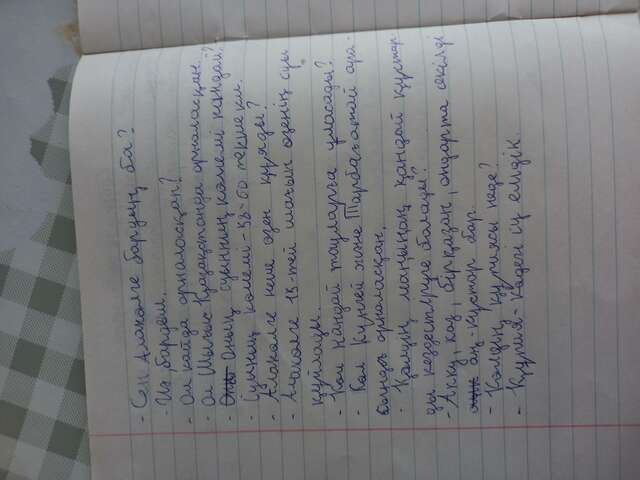 - Сен Алакөлге бардың ба?
Иә, бардым.
- Ол қайда орналасқан?
- Ол Шығыс Қазақстанда орналасқан.
- Оның суының көлемі қандай?
- Суының көлемі - 58-60 текше км.
- Алакөлге неше өзен құяды?
- Алакөлге 15-тей шағын өзенің суы
құйылады.
- Көл қандай тауларға ұласады?
- Көл Күнгей және Тарбағатай ара-
сында орналасқан.
- Көлдің маңынан қандай құстар-
ды кездестіруге болады?
- Аққу, қаз, бірқазан, ондарта екілді
аң-құстар бар.
- Көлдің құпиясы неде?
- Құпия - Кәдегі іц емдік.